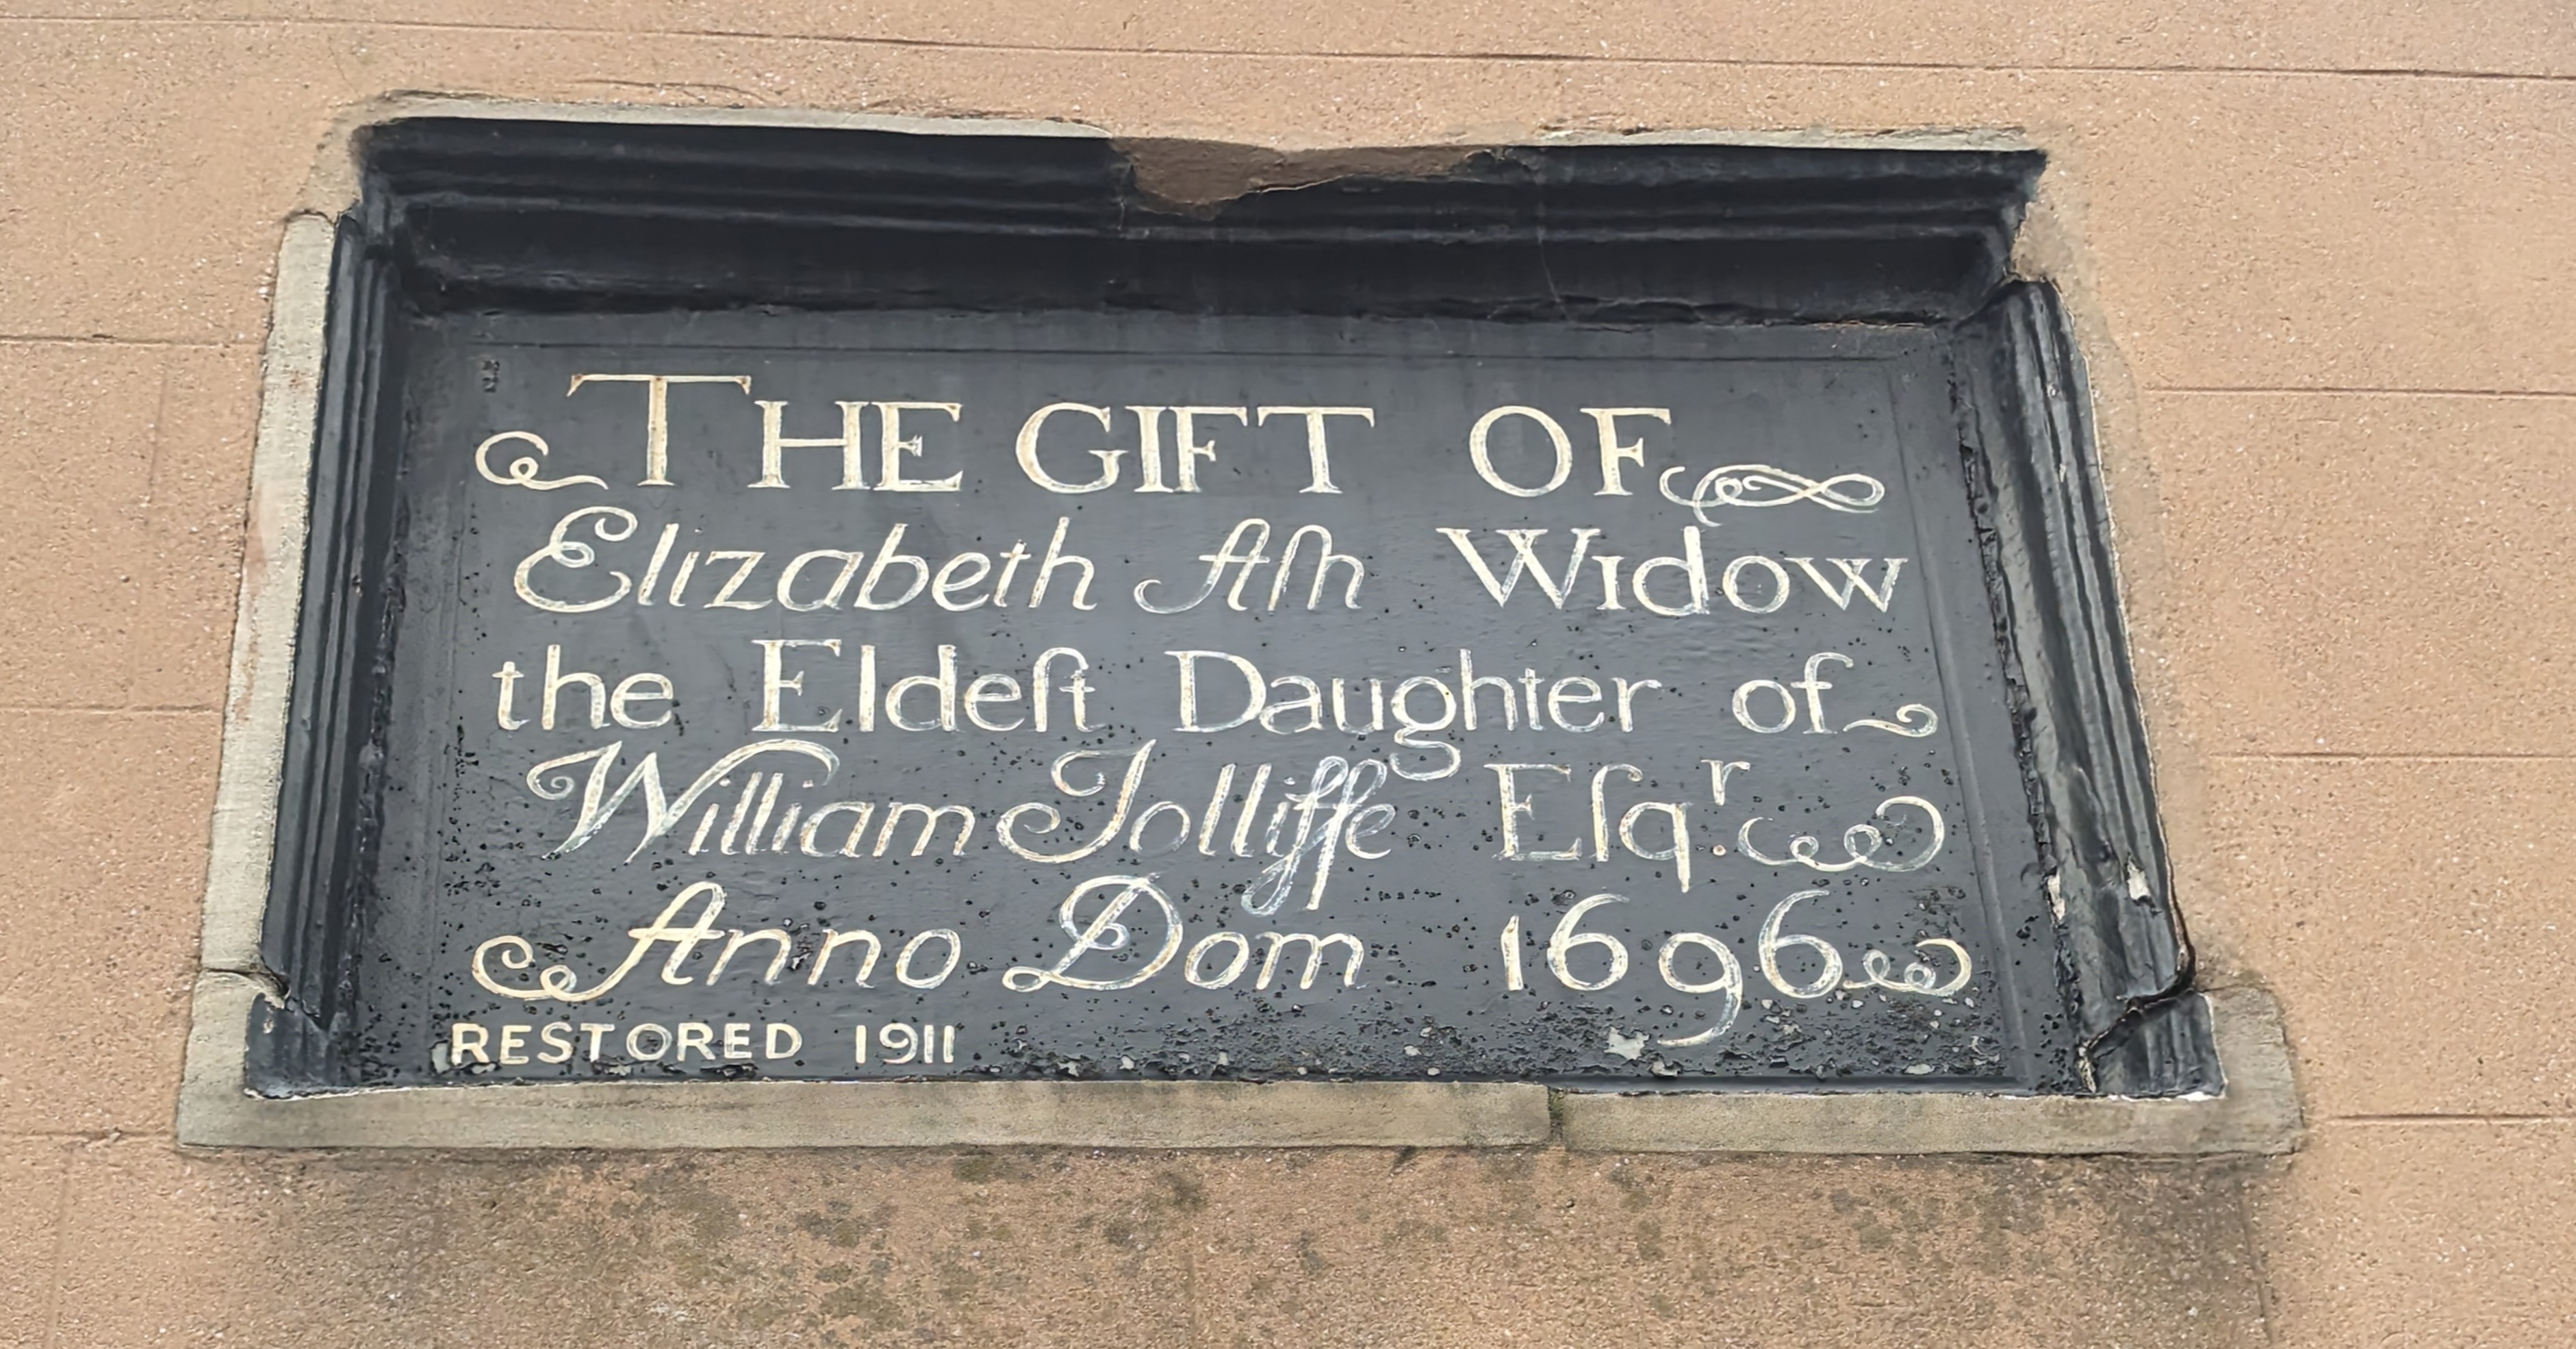 THE GIFT OF
Elizabeth Aſh Widow
the Eldeſt Daughter of
William Jolliffe Eſqʳ.
Anno Dom 1696
RESTORED 1911